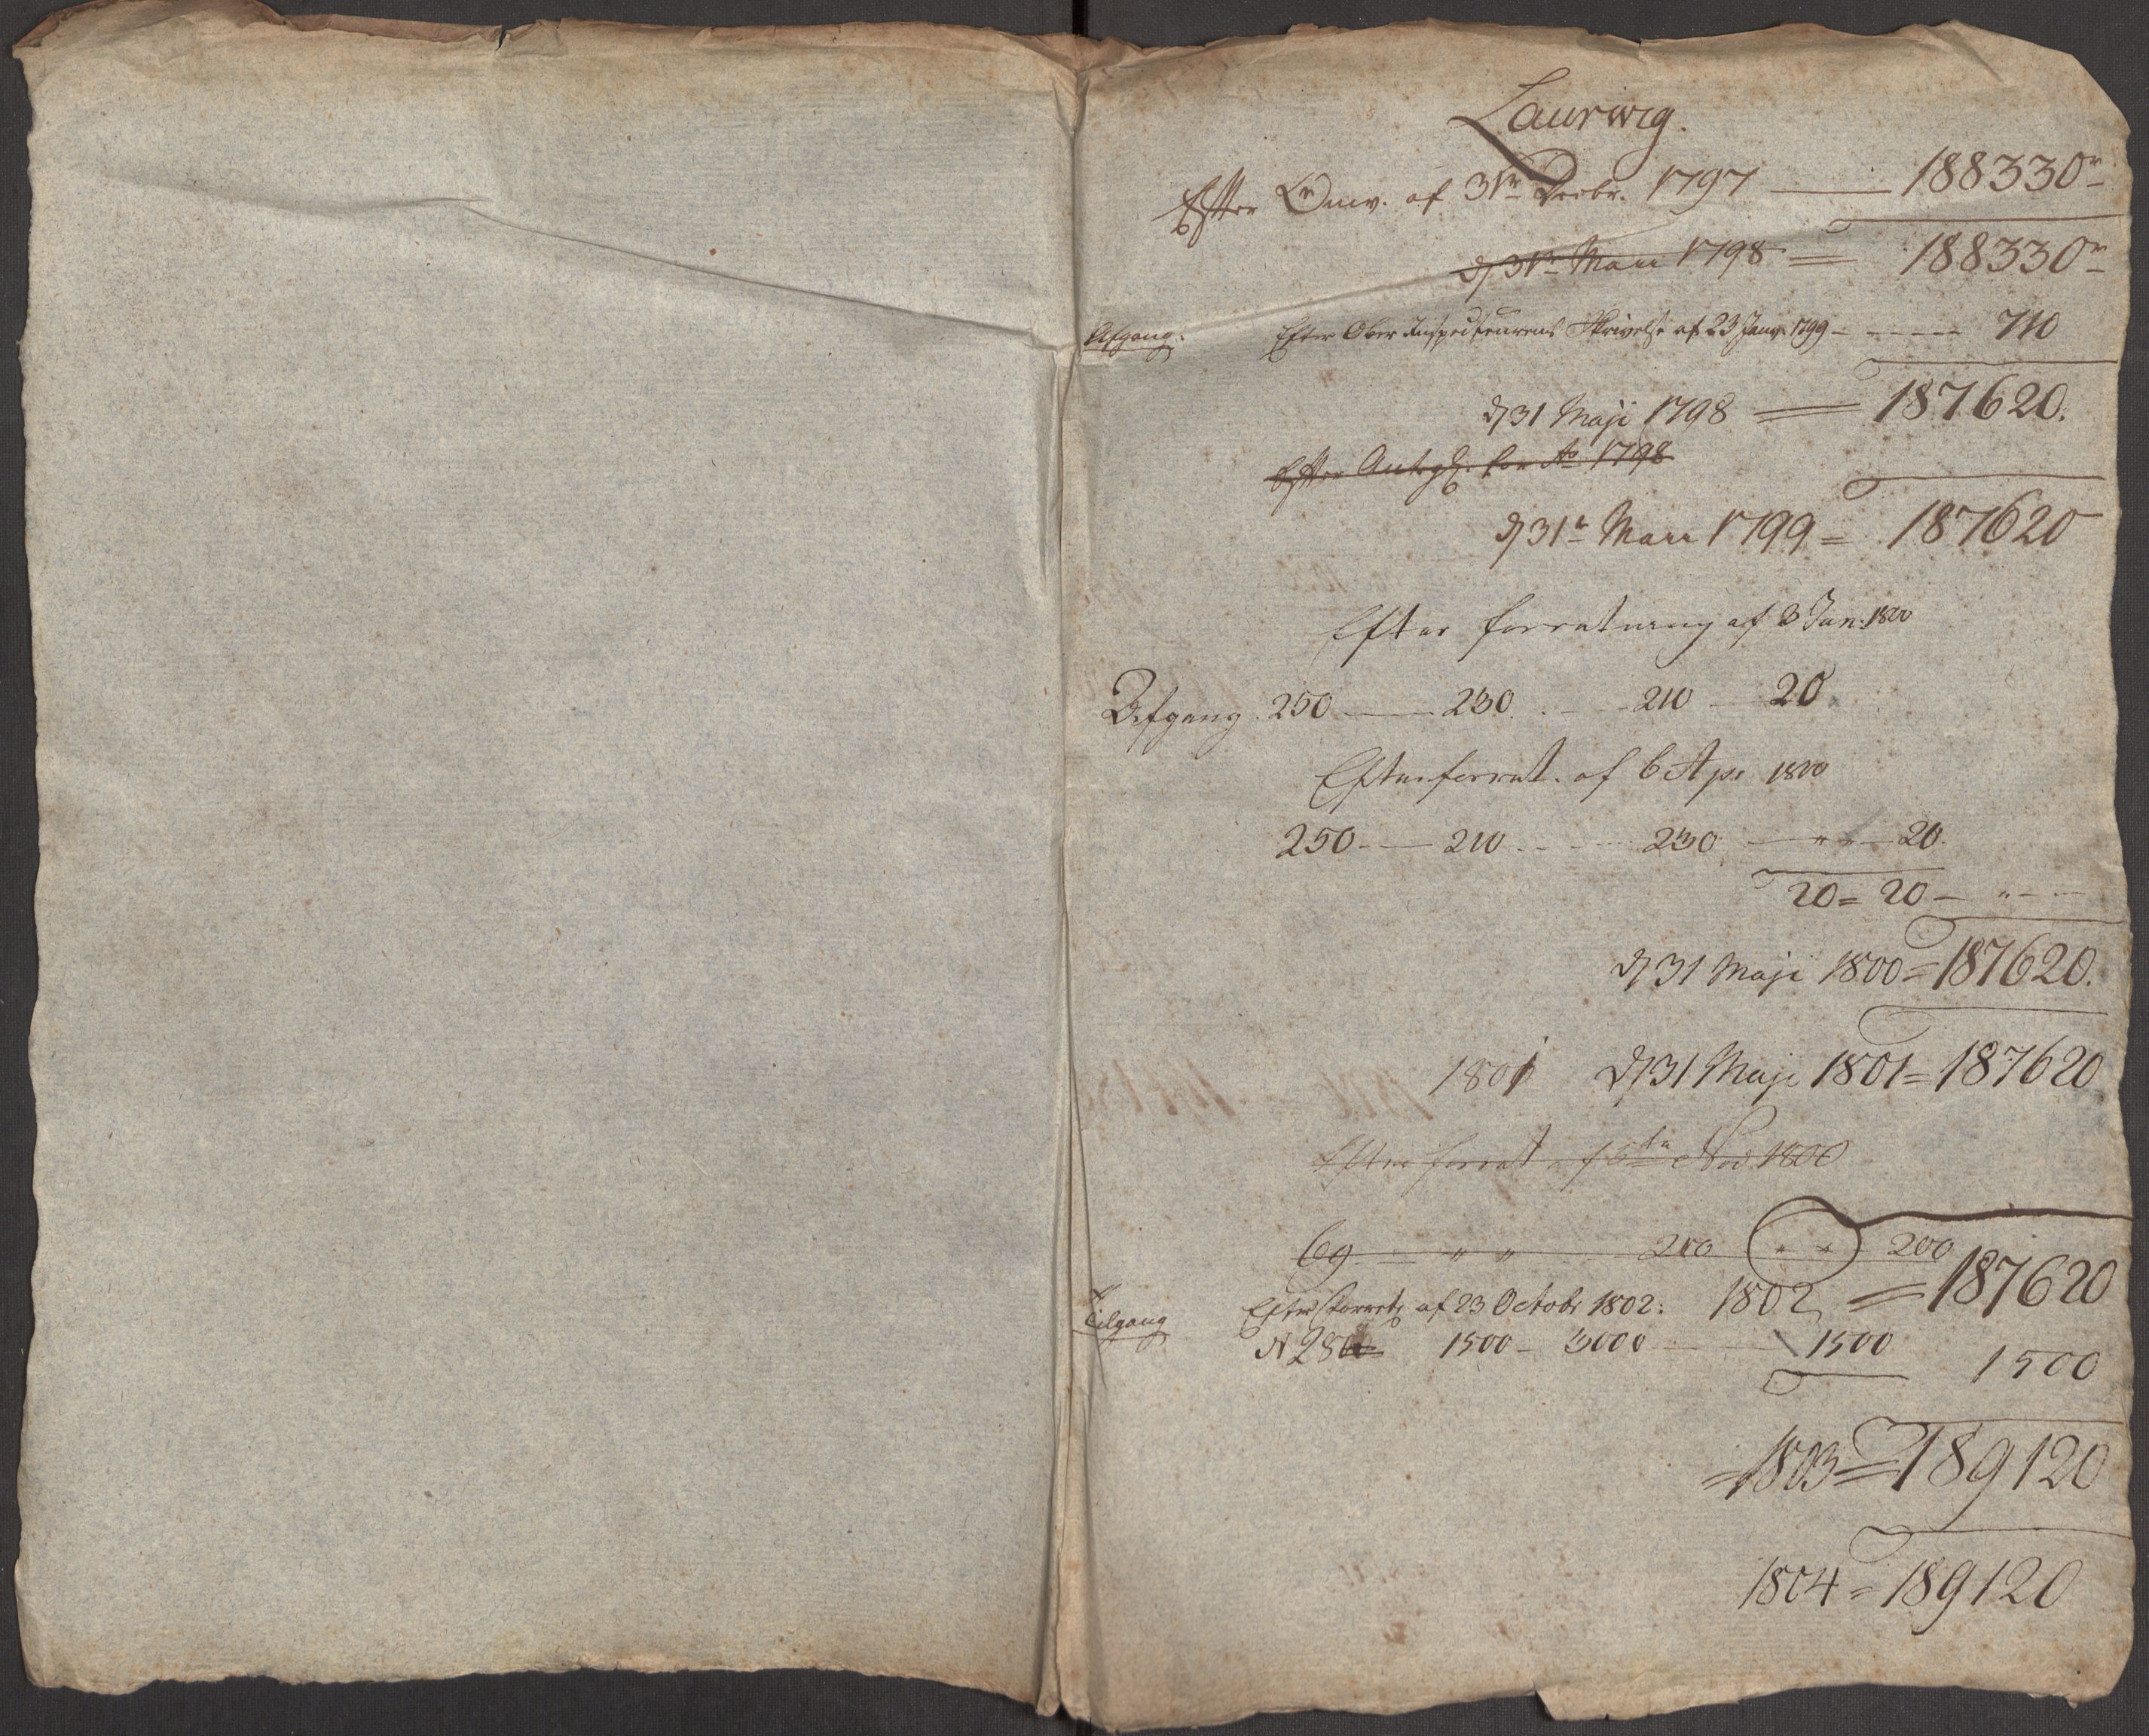 Laurwig.
Efter Omv. af 31te Decbr. 1797 — 188330r
d 31te Marti 1798 = 188330r
Afgang: Efter Ober Inspecteurens Skrivelse af 23 Janv. 1799 — 710
d 31 Maji 1798 = 187620.
Efter for Ao 1798
d 31te Marti 1799 = 187620
Efter forretning af 3 Jan: 1800
Afgang 250 — 230 — 210 — 20
Efter forret. af 6 Apr 1800
250 — 210 — 230 — " " — 20.
20 = 20 — " —
d 31 Maji 1800 = 187620.
1801 d 31 Maji 1801 = 187620
Efter forret. af 5te Nov 1800
69 — " " — 200 " " 200
1802 = 187620
Tilgang Efter forretg af 23 Octobr 1802:
N 28 1500 — 3000 — 1500 1500
= 1803 = 189120
1804 = 189120